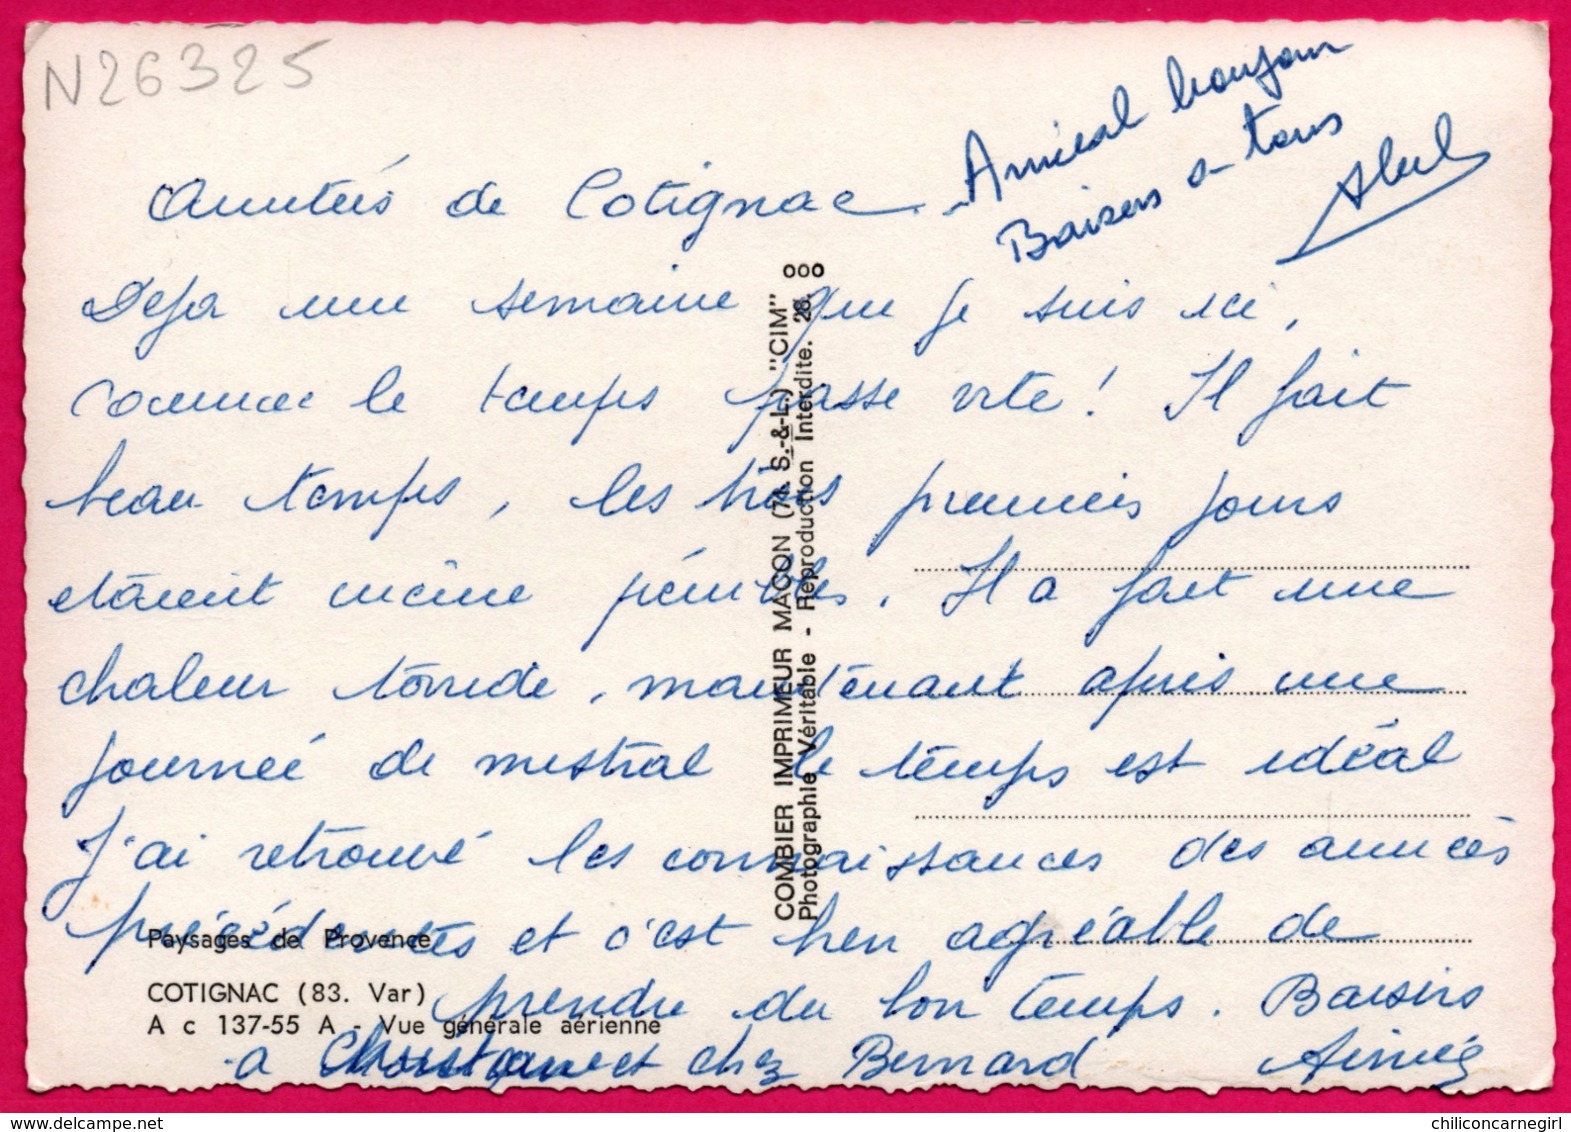 N26325
Amical bonjour
Baisers a tous
Amitiés de Cotignac.
Deja une semaine que je suis ici,
comme le temps passe vite! Il fait
beau temps, les trois premiers jours
etaient même pénibles. Il a fait une
chaleur torride, maintenant après une
journeé de mistral le temps est idéal
J'ai retrouvé les connaissances des années
précédentes et c'est bien agréable de
prendre du bon temps. Baisers
a et chez Bernard Aimée
COMBIER IMPRIMEUR MACON (71. S.-&-L.) "CIM" ooo
Photographie Véritable - Reproduction Interdite. 26.
Paysages de Provence
COTIGNAC (83. Var)
A c 137-55 A - Vue générale aérienne
www.delcampe.net
chiliconcarnegirl